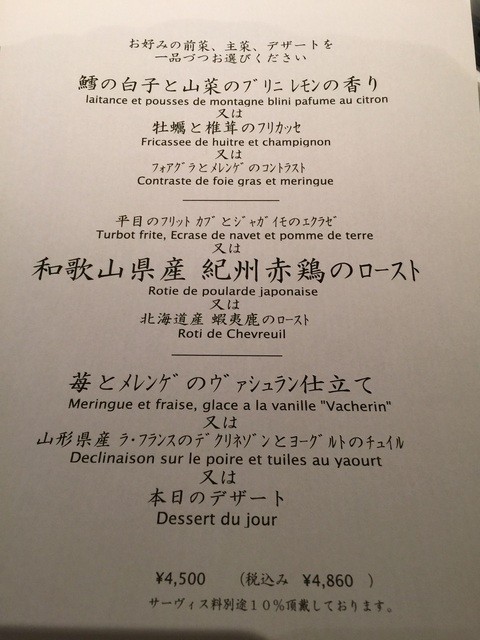 お好みの前菜、主菜、デザートを
一品づつお選びください
鱈の白子と山菜のﾌﾞﾘﾆ ﾚﾓﾝの香り
laitance et pousses de montagne blini pafume au citron
又は
牡蠣と椎茸のﾌﾘｶｯｾ
Fricassee de huitre et champignon
又は
ﾌｫｱｸﾞﾗとﾒﾚﾝｹﾞのｺﾝﾄﾗｽﾄ
Contraste de foie gras et meringue
平目のﾌﾘｯﾄ ｶﾌﾞとｼﾞｬｶﾞｲﾓのｴｸﾗｾﾞ
Turbot frite, Ecrase de navet et pomme de terre
又は
和歌山県産 紀州赤鶏のﾛｰｽﾄ
Rotie de poularde japonaise
又は
北海道産 蝦夷鹿のﾛｰｽﾄ
Roti de Chevreuil
苺とﾒﾚﾝｹﾞのヴｧｼｭﾗﾝ仕立て
Meringue et fraise, glace a la vanille "Vacherin"
又は
山形県産 ﾗ･ﾌﾗﾝｽのﾃﾞｸﾘﾈｿﾞﾝとﾖｰｸﾞﾙﾄのﾁｭｲﾙ
Declinaison sur le poire et tuiles au yaourt
又は
本日のデザート
Dessert du jour
¥4,500 (税込み ¥4,860 )
サーヴィス料別途１０％頂戴しております。